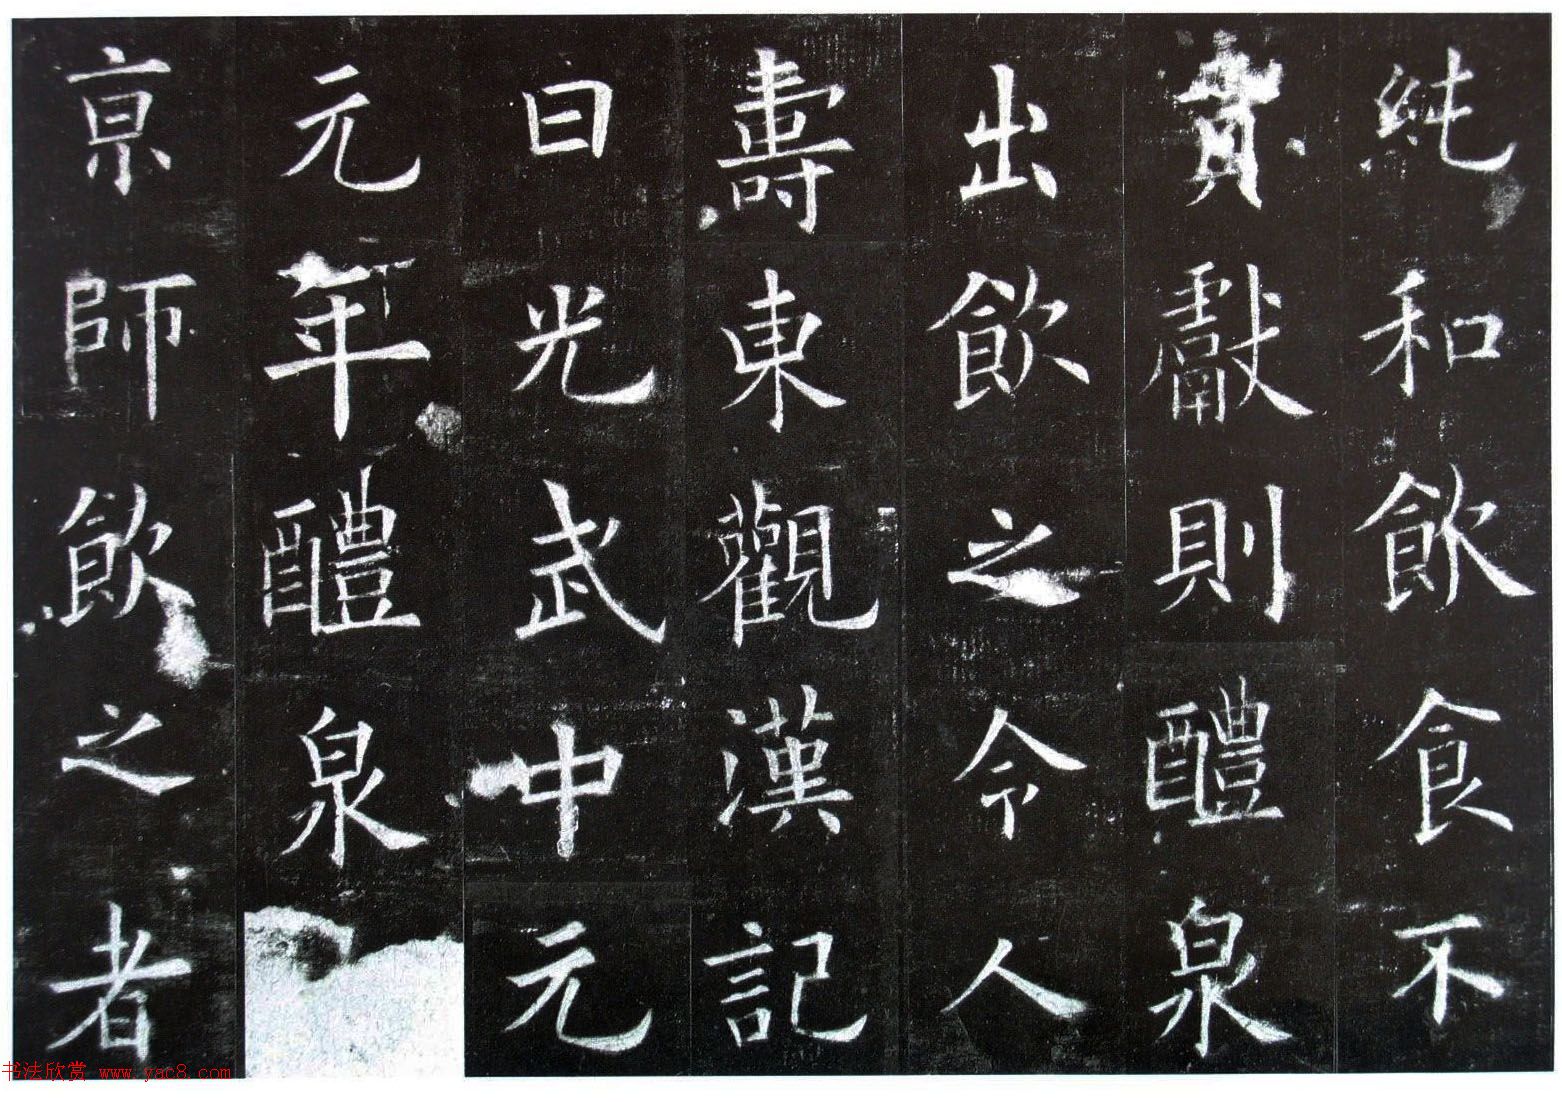 純和飲食不
貢獻則醴泉
出飲之令人
壽東觀漢記
曰光武中元
元年醴泉
京師飲之者
书法欣赏 www.yac8.com